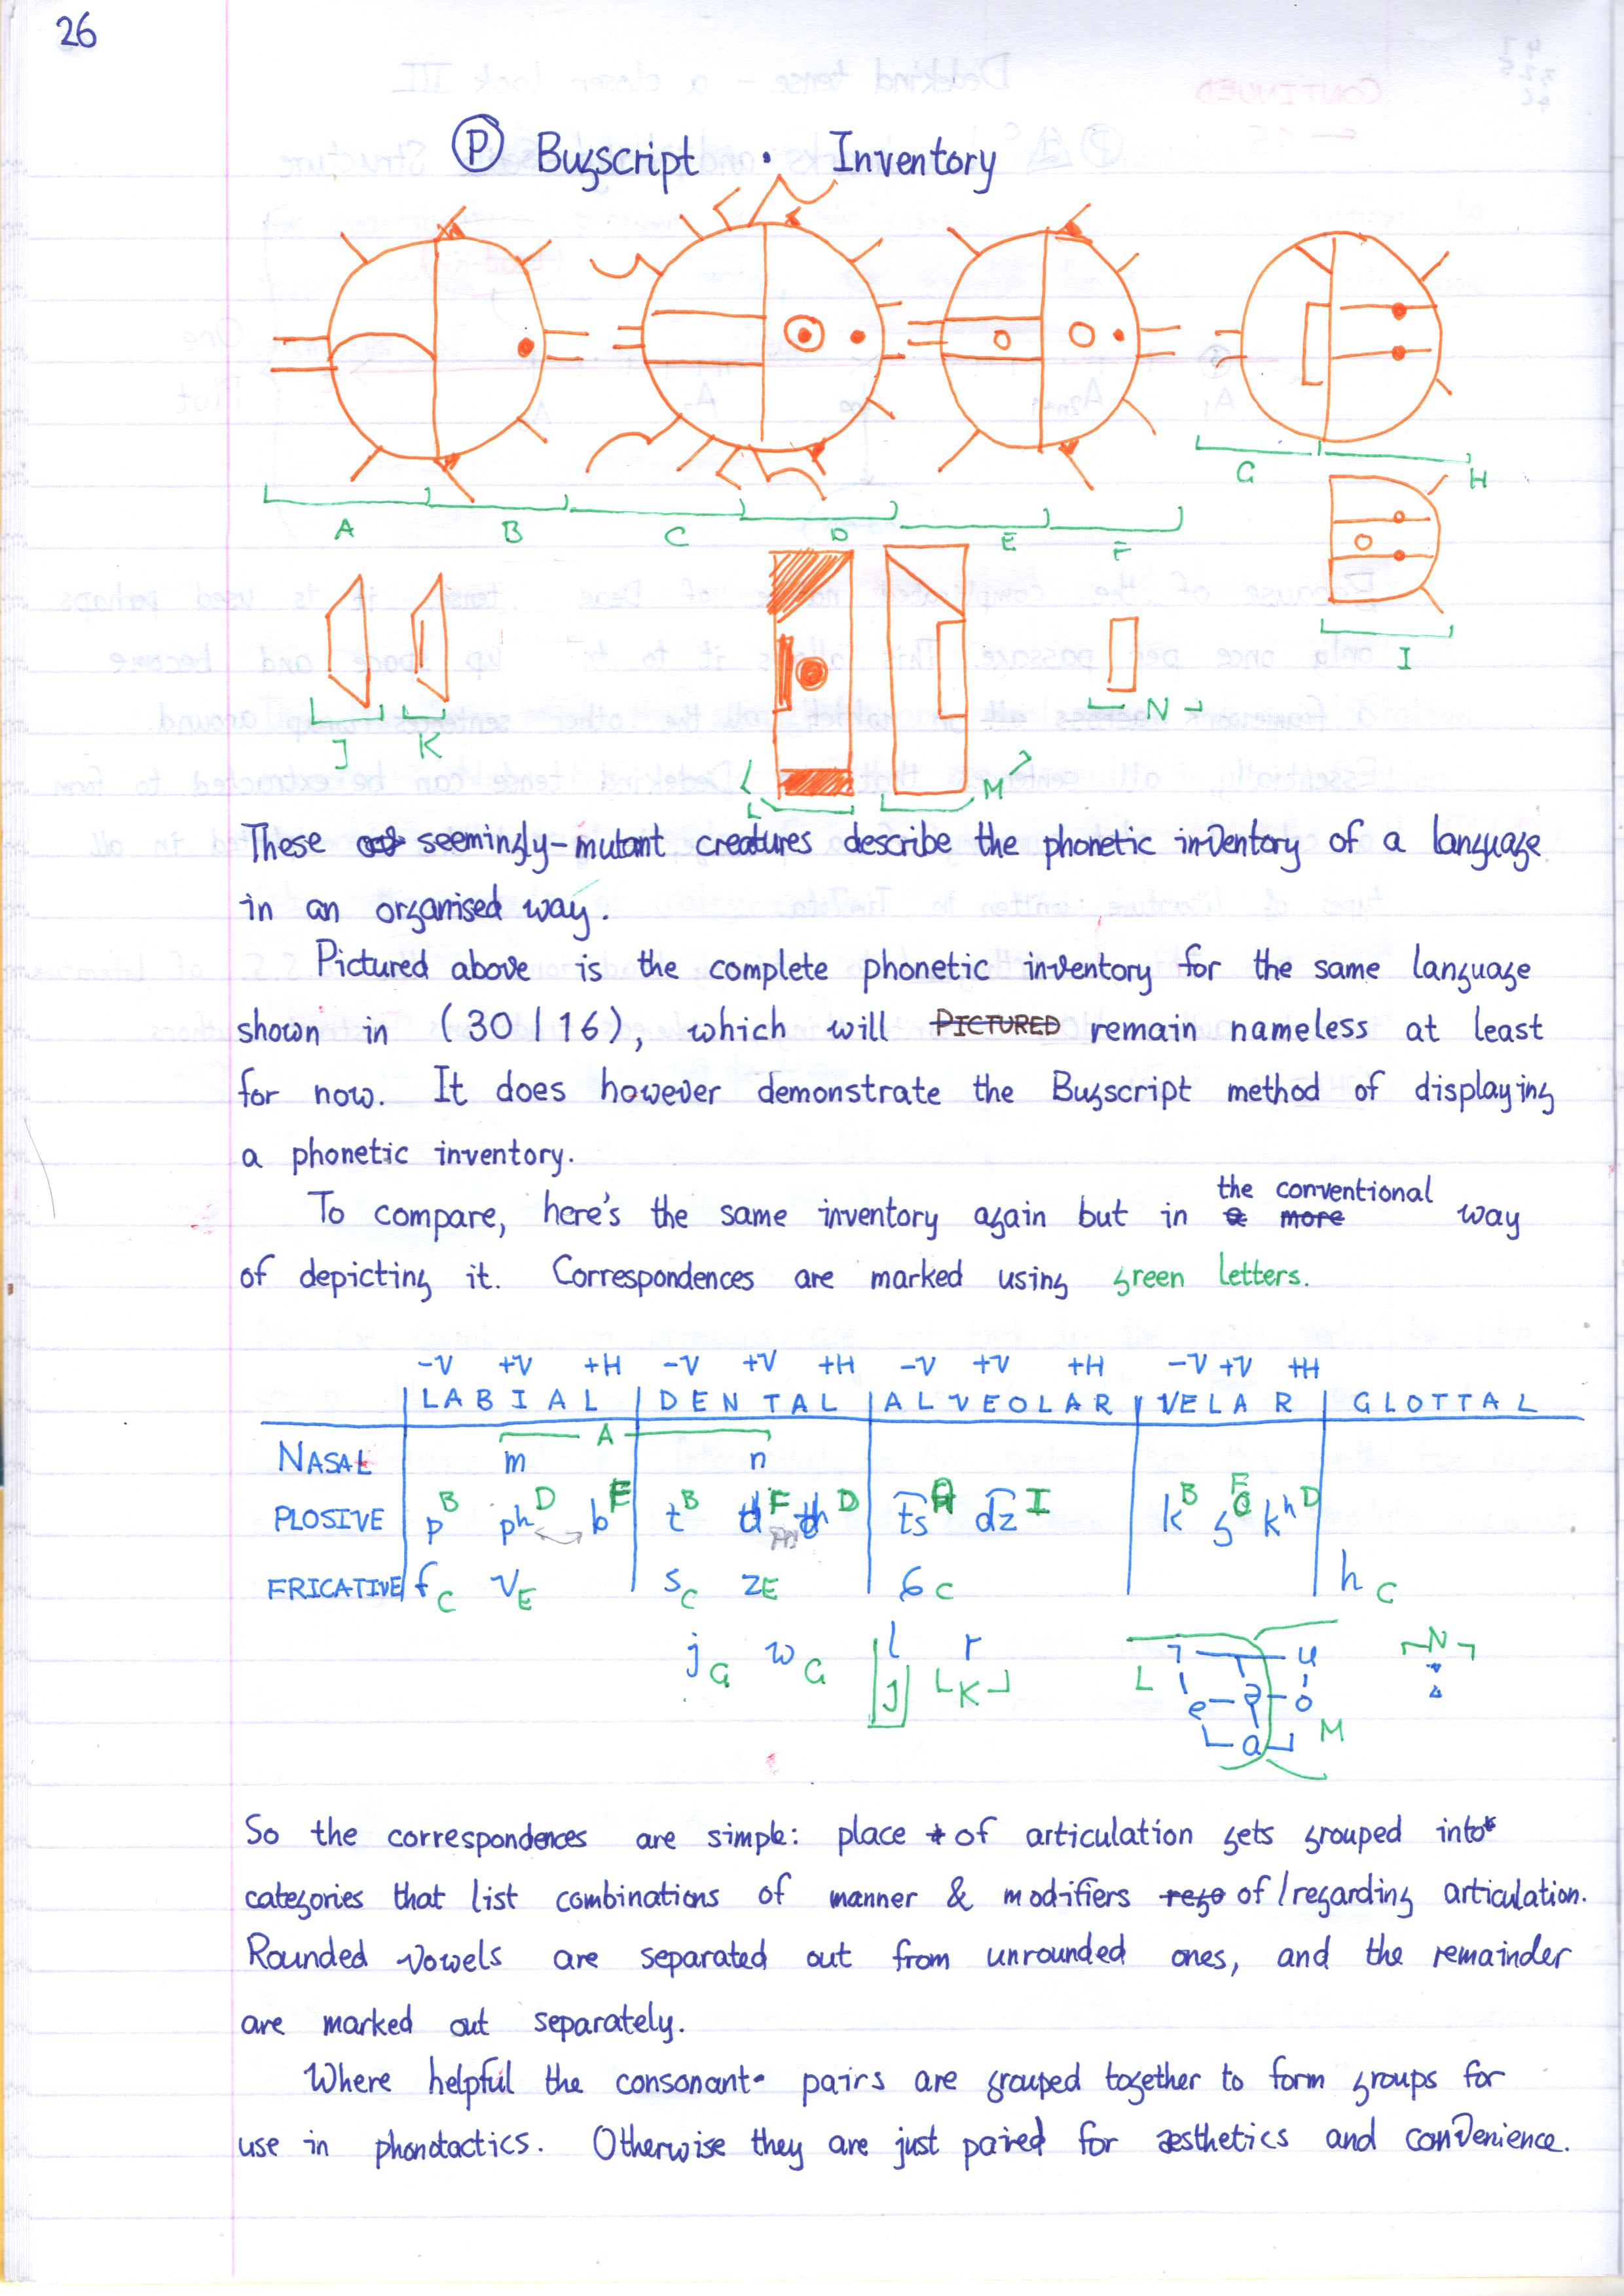 26
P Bugscript · Inventory
A B C D E F G H
I
J K L M N
These seemingly-mutant creatures describe the phonetic inventory of a language
in an organised way.
Pictured above is the complete phonetic inventory for the same language
shown in (30/16), which will PICTURED remain nameless at least
for now. It does however demonstrate the Bugscript method of displaying
a phonetic inventory.
the conventional
To compare, here's the same inventory again but in a more way
of depicting it. Correspondences are marked using green letters.
-V +V +H -V +V +H -V +V +H -V +V +H
LABIAL DENTAL ALVEOLAR VELAR GLOTTAL
A
NASAL m n
PLOSIVE p B ph D b F t B d F th D ts H dz I k B g F kh D
FRICATIVE f C v E s C z E 6 C h C
j G w G l J r K L u N
e ə o
a M
So the correspondences are simple: place of articulation gets grouped into
categories that list combinations of manner & modifiers rego of/regarding articulation.
Rounded vowels are separated out from unrounded ones, and the remainder
are marked out separately.
Where helpful the consonant- pairs are grouped together to form groups for
use in phonotactics. Otherwise they are just paired for æsthetics and convenience.